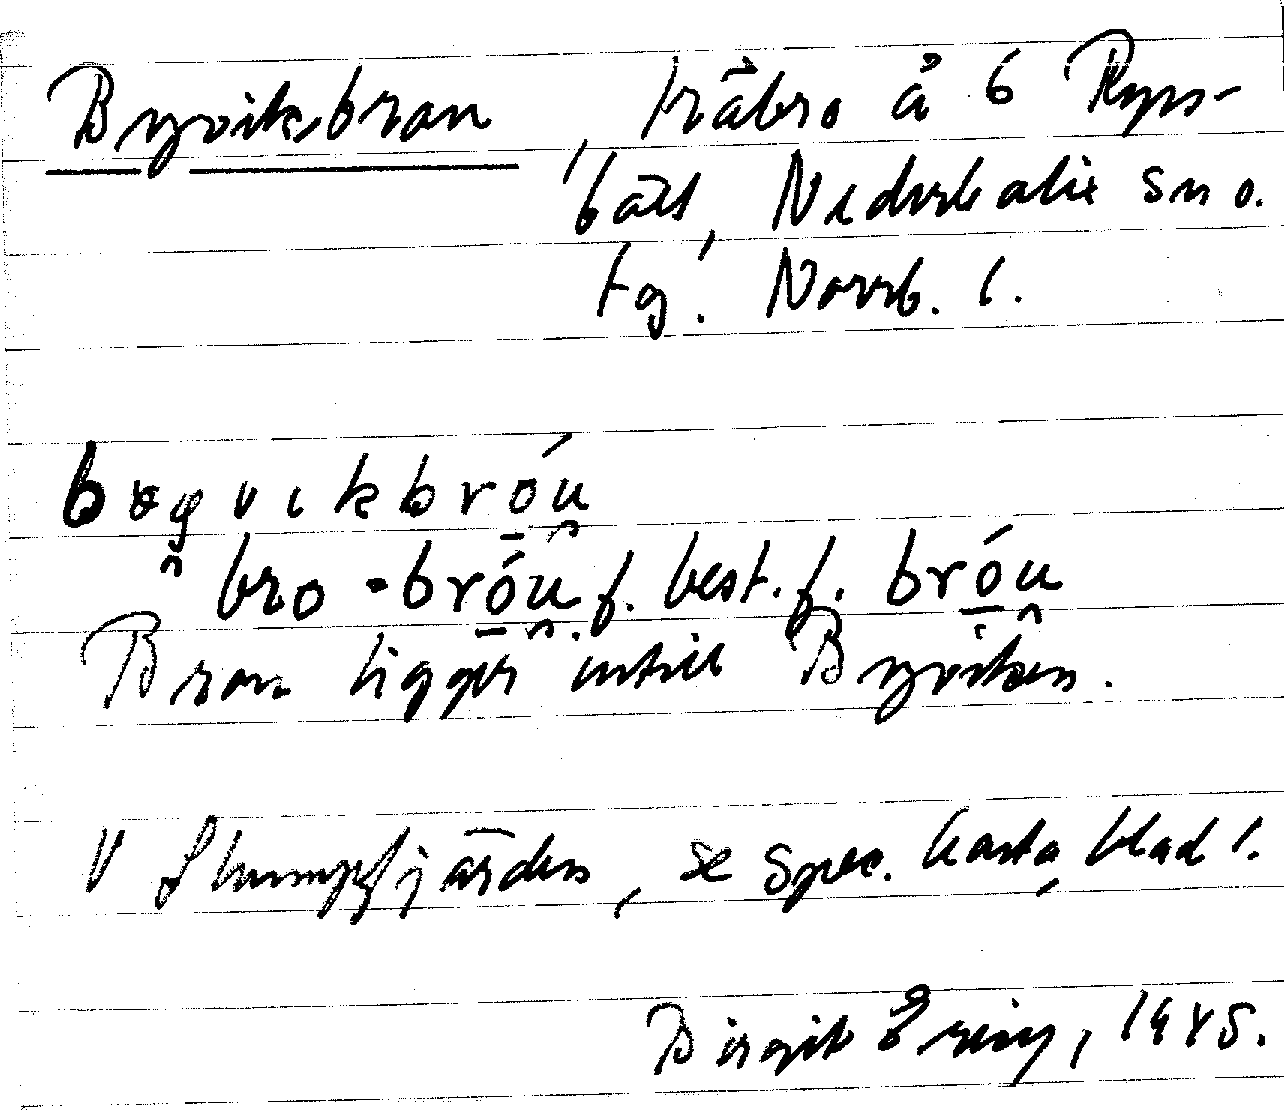 Byviksbron, träbro å 6 Ryss-
bält, Nederkalix sn o.
tg. Norrb. l.
bro - bróu f. best. f. bróu
Bron ligger intill Byviken.
V Skumpfjärden, se spec. karta, blad 1.
Birgit 1945.